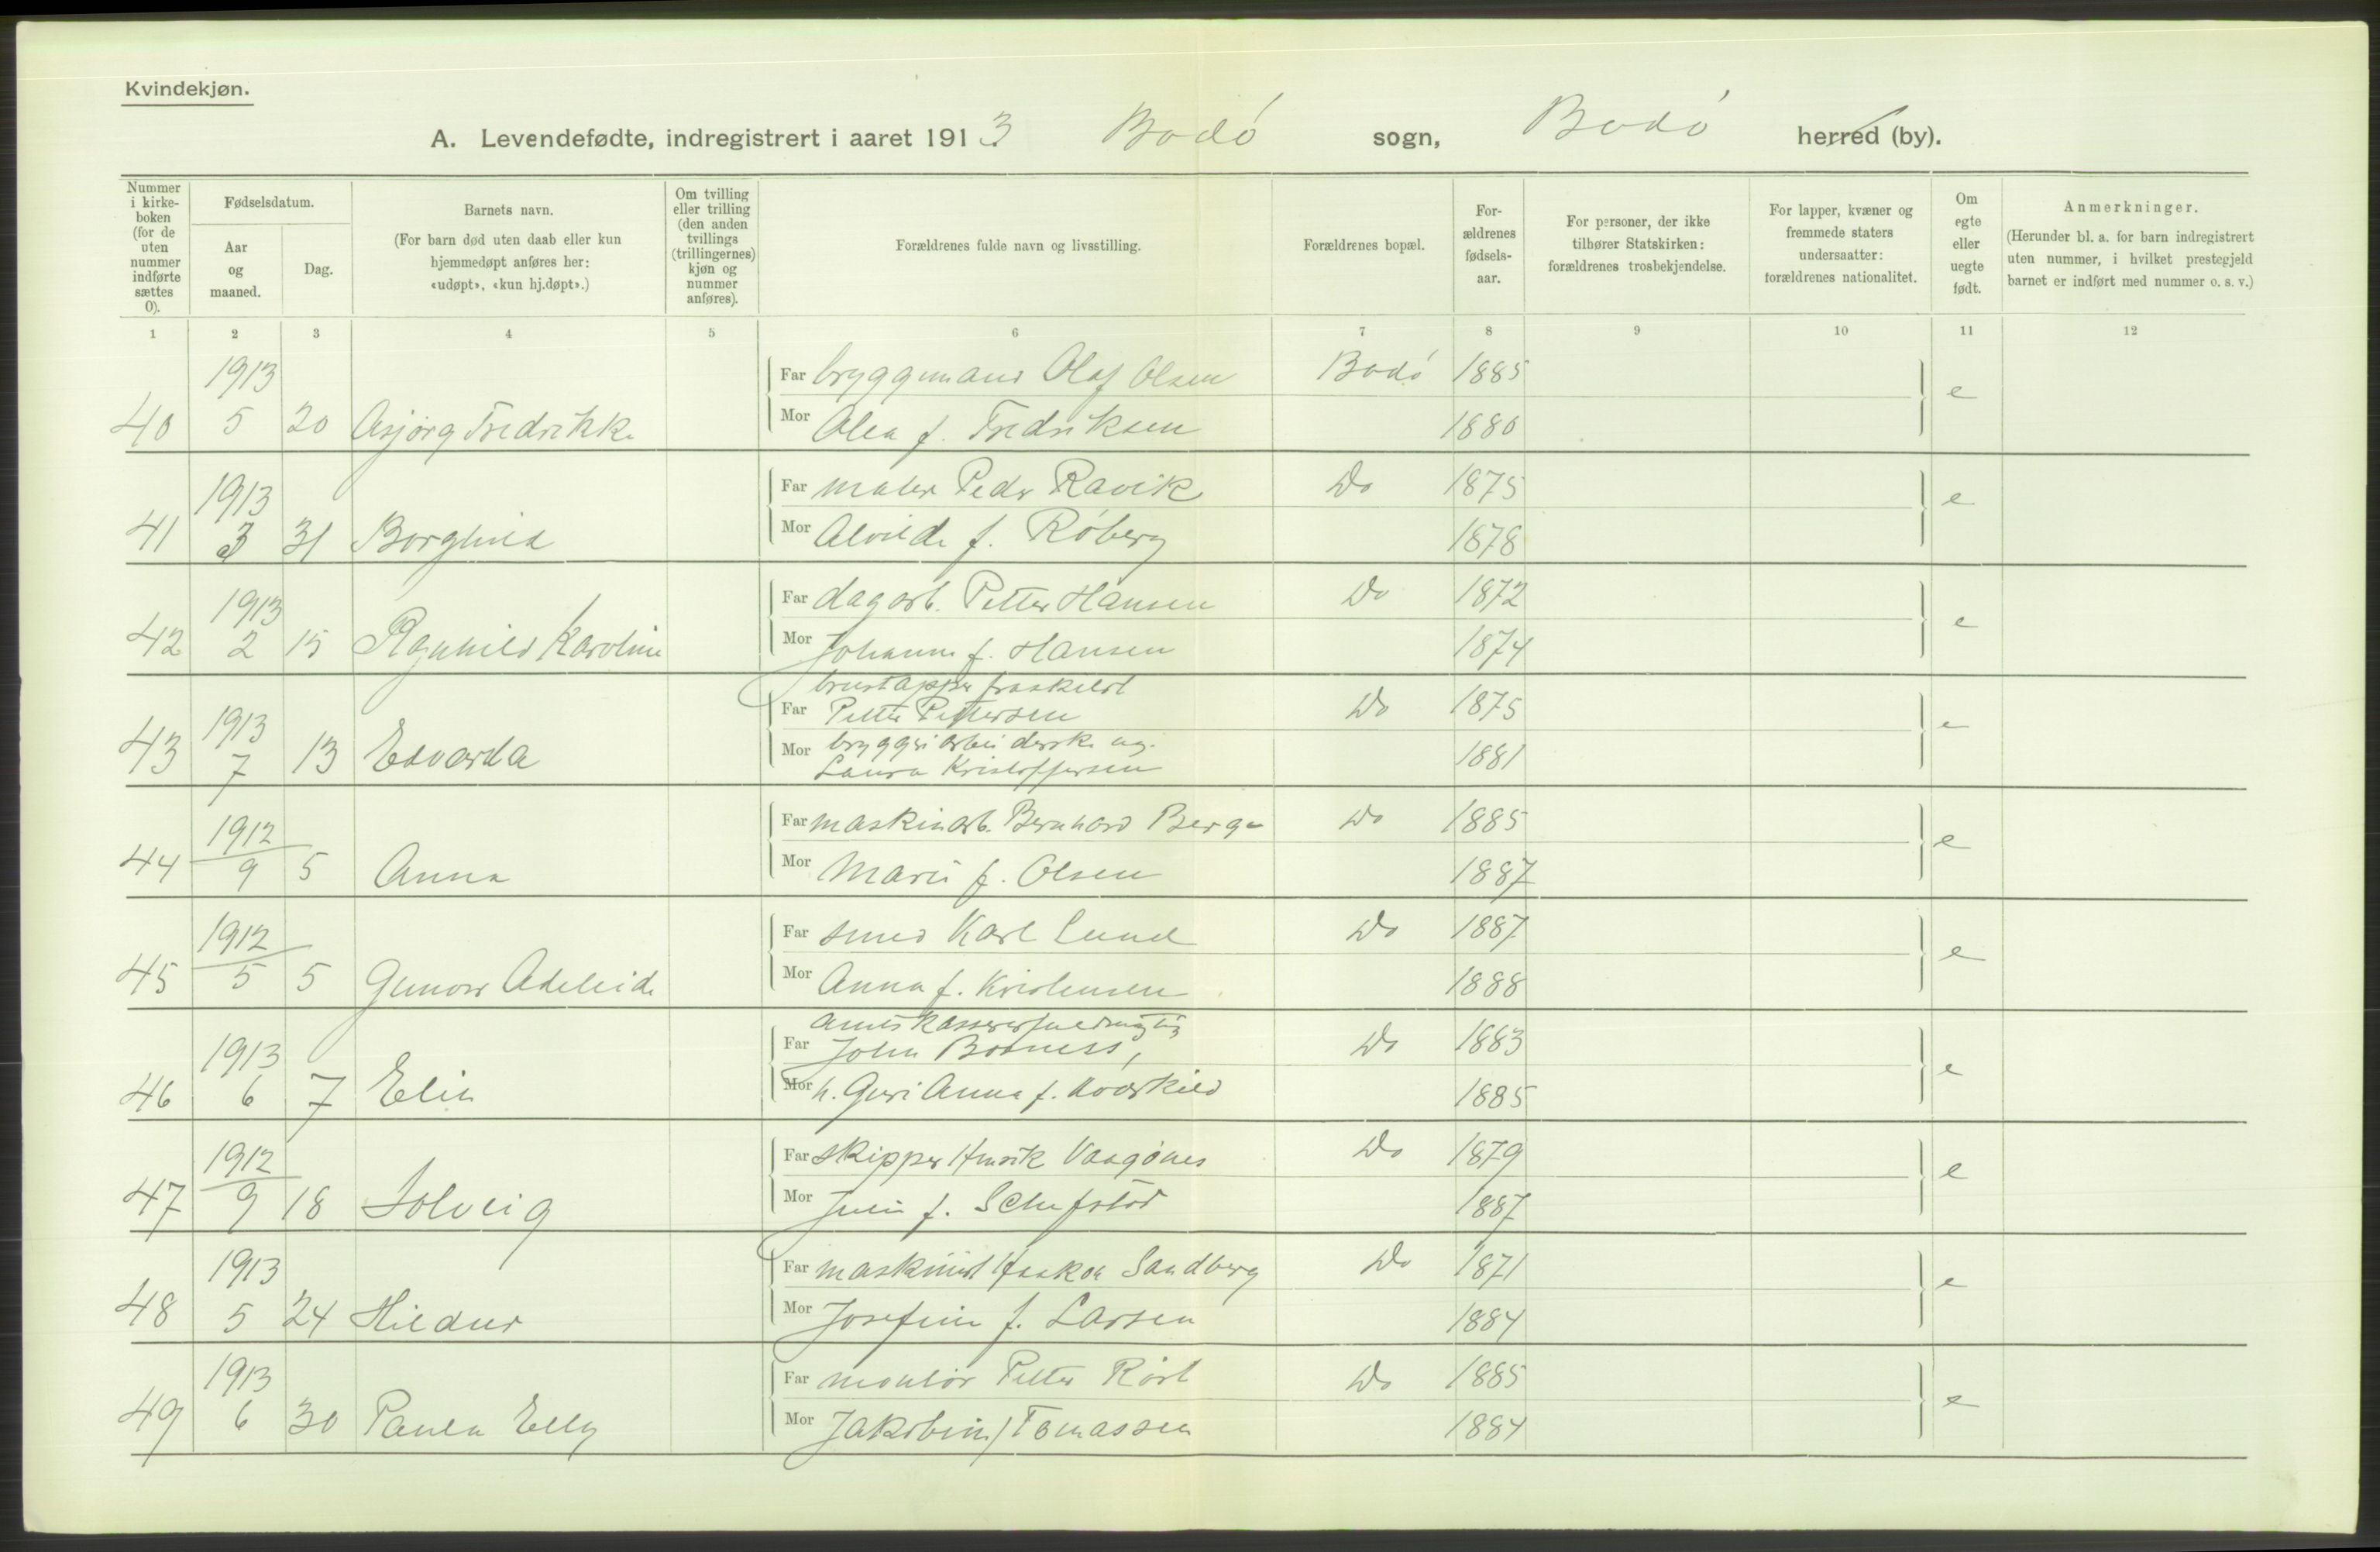 Kvindekjøn.
A. Levendefødte, indregistrert i aaret 1913 Bodø sogn, Bodø herred (by).
Nummer i kirkeboken (for de uten nummer indførte sættes 0).
Fødselsdatum.
Aar og maaned.
Dag.
Barnets navn.
(For barn død uten daab eller kun hjemmedøpt anføres her: «udøpt», «kun hj.døpt».)
Om tvilling eller trilling (den anden tvillings (trillingernes) kjøn og nummer anføres).
Forældrenes fulde navn og livsstilling.
Forældrenes bopæl.
Forældrenes fødselsaar.
For personer, der ikke tilhører Statskirken: forældrenes trosbekjendelse.
For lapper, kvæner og fremmede staters undersaatter: forældrenes nationalitet.
Om egte eller uegte født.
Anmerkninger.
(Herunder bl. a. for barn indregistrert uten nummer, i hvilket prestegjeld barnet er indført med nummer o. s. v.)
1 2 3 4 5 6 7 8 9 10 11 12
1913 Far bryggemand Olaf Olsen Bodø 1885 e
40 5 20 Asjørg Fredrikke Mor Olea f. Fredriksen 1880
1913 Far maler Peder Ravik Do 1875 e
41 3 31 Borghild Mor Alvilde f. Røberg 1878
1913 Far dagarb. Petter Hansen Do 1872 e
42 2 15 Ragnhild Karoline Mor Johanna f. Hansen 1874
fraskilt
1913 Far Petter Pettersen Do 1875 e
Mor bryggeriarbeiderske ug.
43 7 13 Edvarda Laura Kristoffersen 1881
1912 Far maskinarb. Bernhard Berge Do 1885 e
44 9 5 Anna Mor Marie f. Olsen 1887
1912 Far smed Karl Lund Do 1887 e
45 5 5 Gunvor Adeleide Mor Anna f. Kristensen 1888
1913 Far John Do 1883 e
46 6 7 Elin Mor h. Guri Anna f. 1885
1912 Far skipper Henrik Vaagønes Do 1879 e
47 9 18 Solveig Mor f. 1887
1913 Far maskinist Haakon Sandberg Do 1871 e
48 5 24 Hildur Mor Josefine f. Larsen 1884
1913 Far montør Petter Røst Do 1885 e
49 6 30 Paula Elly Mor Jakobine f Tomassen 1884